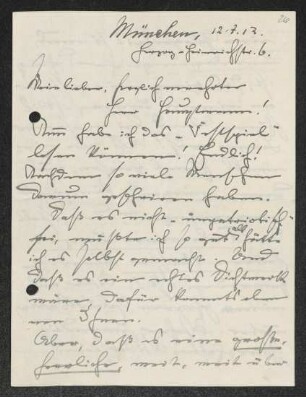 München, 12.7.13.
Herzog-Heinrichstr. 6.
Mein lieber, herzlich verehrter
Herr Hauptmann!
Nun habe ich das „Festspiel“
lesen können! Endlich!
Nachdem so viele Menschen
darum geschrieen haben.
Daß es nicht „unpatriotisch“
sei, wußte ich so gut als hätte
ich es selbst gemacht. Und
daß es ein echtes Dichtwerk
wäre, dafür kannte ich
von Ihnen.
Aber, daß es eine große,
herrliche, weit, weit über